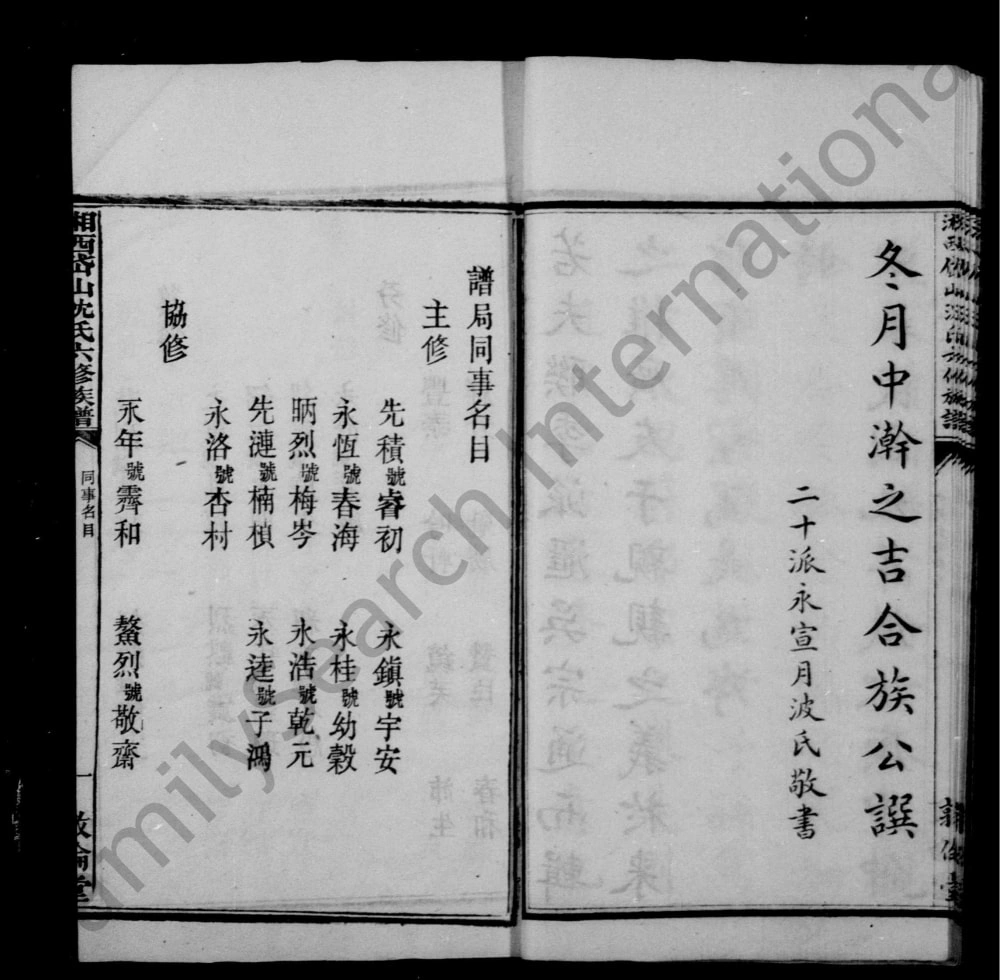 冬月中澣之吉合族公譔
二十派永宣月波氏敬書
譜局同事名目
主修
先積號睿初 永鎮號宇安
永恆號春海 永桂號幼穀
昞烈號梅岑 永浩號乾元
先漣號楠楨 永逵號子鴻
永洛號杏村
協修
永年號霽和 鰲烈號敬齋
湘西岱山沈氏六修族譜
同事名目
一
敦倫堂
FamilySearch International